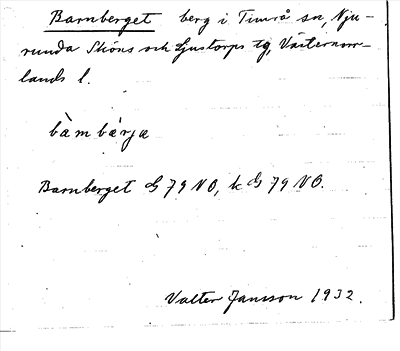 Barnberget berg i Timrå sn, Nju-
runda Sköns och Ljustorps tg, Västernorr-
lands l.
bàmbárja
Barnberget G 79 NO, k G 79 NO.
Valter Jansson 1932.